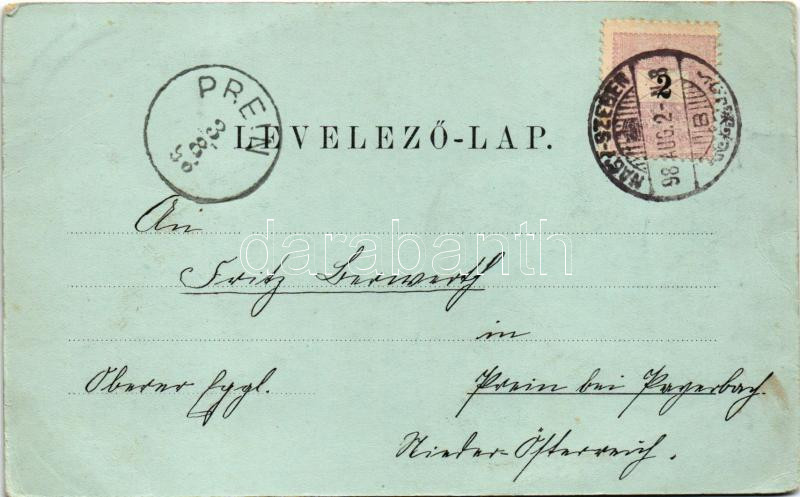 PREIN
LEVELEZŐ-LAP.
2
NAGY-SZEBEN
98 AUG. 2
B
darabanth
An
Fritz Berwerth
in
Oberer Eggl.
Prein bei Payerbach.
Nieder-Österreich.